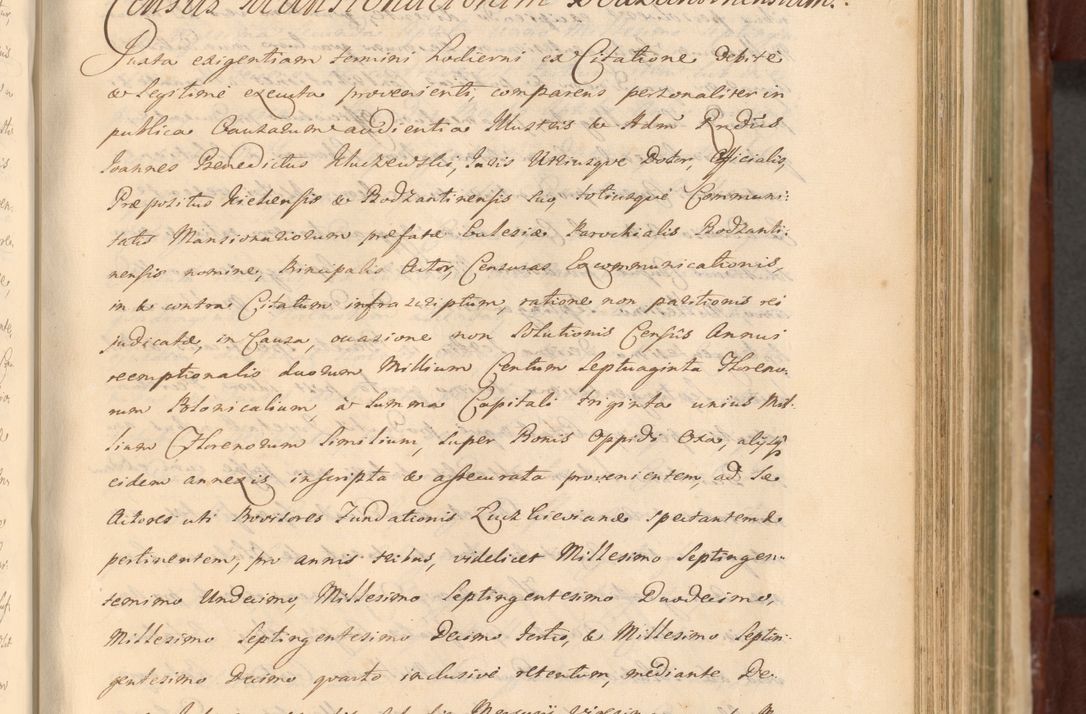 Census Mansionariorum Bodzantinensium.
Juxta exigentiam termini hodierni ex Citatione debite
& legitime executa provenienti, comparens personaliter in
publica Causarum audientia Illustris & Adm Rndus
Joannes Benedictus Kluczewski, Juris Utriusque Doctor, Officialis,
Præpositus Kielcensis & Bodzantinensis suo, totiusque Communi:
tatis Mansionariorum præfatæ Ecclesiæ Parochialis Bodzanti:
nensis nomine, Principalis Actor, Censuras Excommunicationis,
in & contra Citatum infrascriptum, ratione non paritionis rei
judicatæ, in Causa, occasione non Solutionis Censûs Annui
reemptionalis duorum Millium Centum Septuaginta Floreno:
rum Polonicalium, à Summa Capitali triginta unius Mil:
lium Florenorum Similium, super Bonis Oppidi Oxa, alysq
eidem annexis inscripta & assecurata provenientem, ad Se
Actores uti Provisores Fundationis Luckieviana spectantem &
pertinentem, pro annis tribus, videlicet Millesimo Septingen:
tesimo Undecimo, Millesimo Septingentesimo Duodecimo,
Millesimo Septingentesimo Decimo tertio, & Millesimo Septin:
gentesimo Decimo quarto inclusive retentum, mediante De: